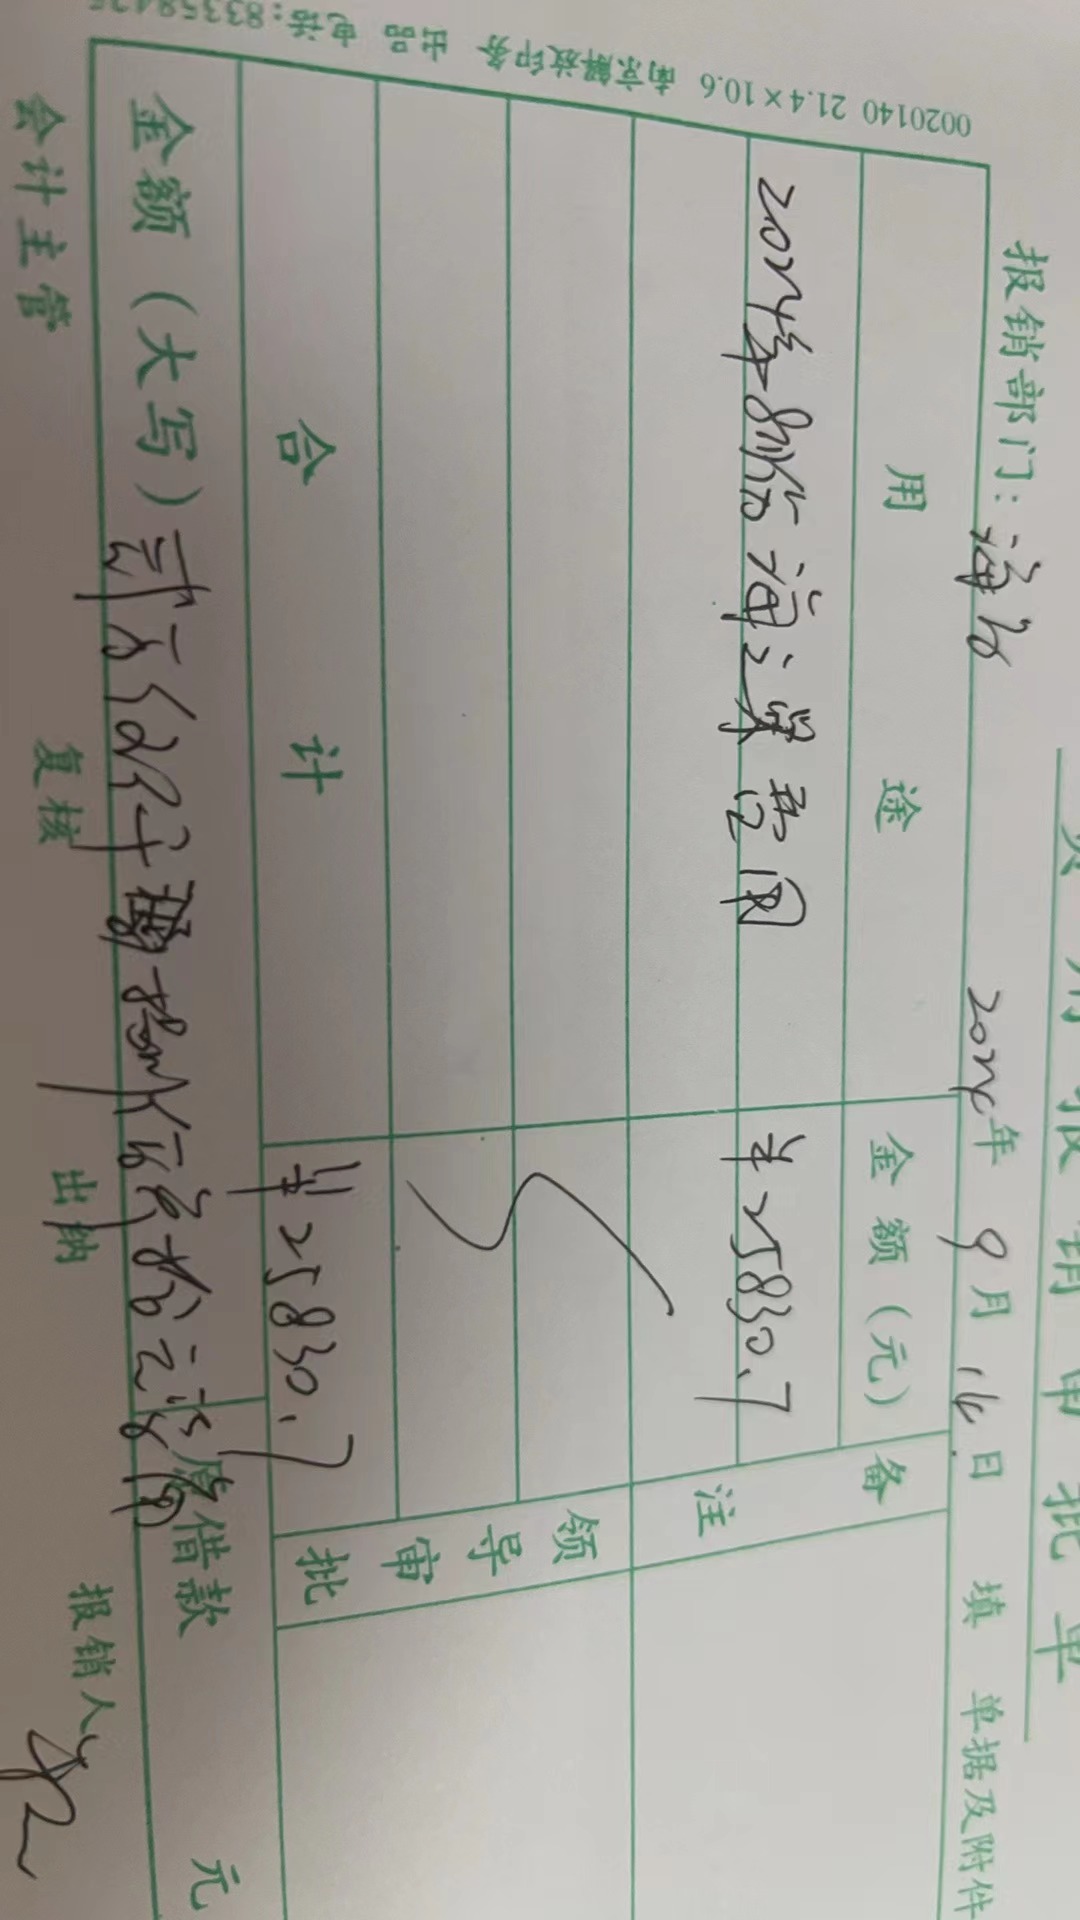 费用报销审批单
报销部门：海弘 2024年 9月 14日 填 单据及附件
用途 金额（元） 备注
2024年8月份海运单费用 ¥25830.7
领导审批
合计 ¥25830.7
金额（大写）贰万伍仟捌捌佰叁拾元柒角 原借款 元
会计主管 复核 出纳 报销人
0020140 21.4×10.6 南京解放印务 出品 电话：833584